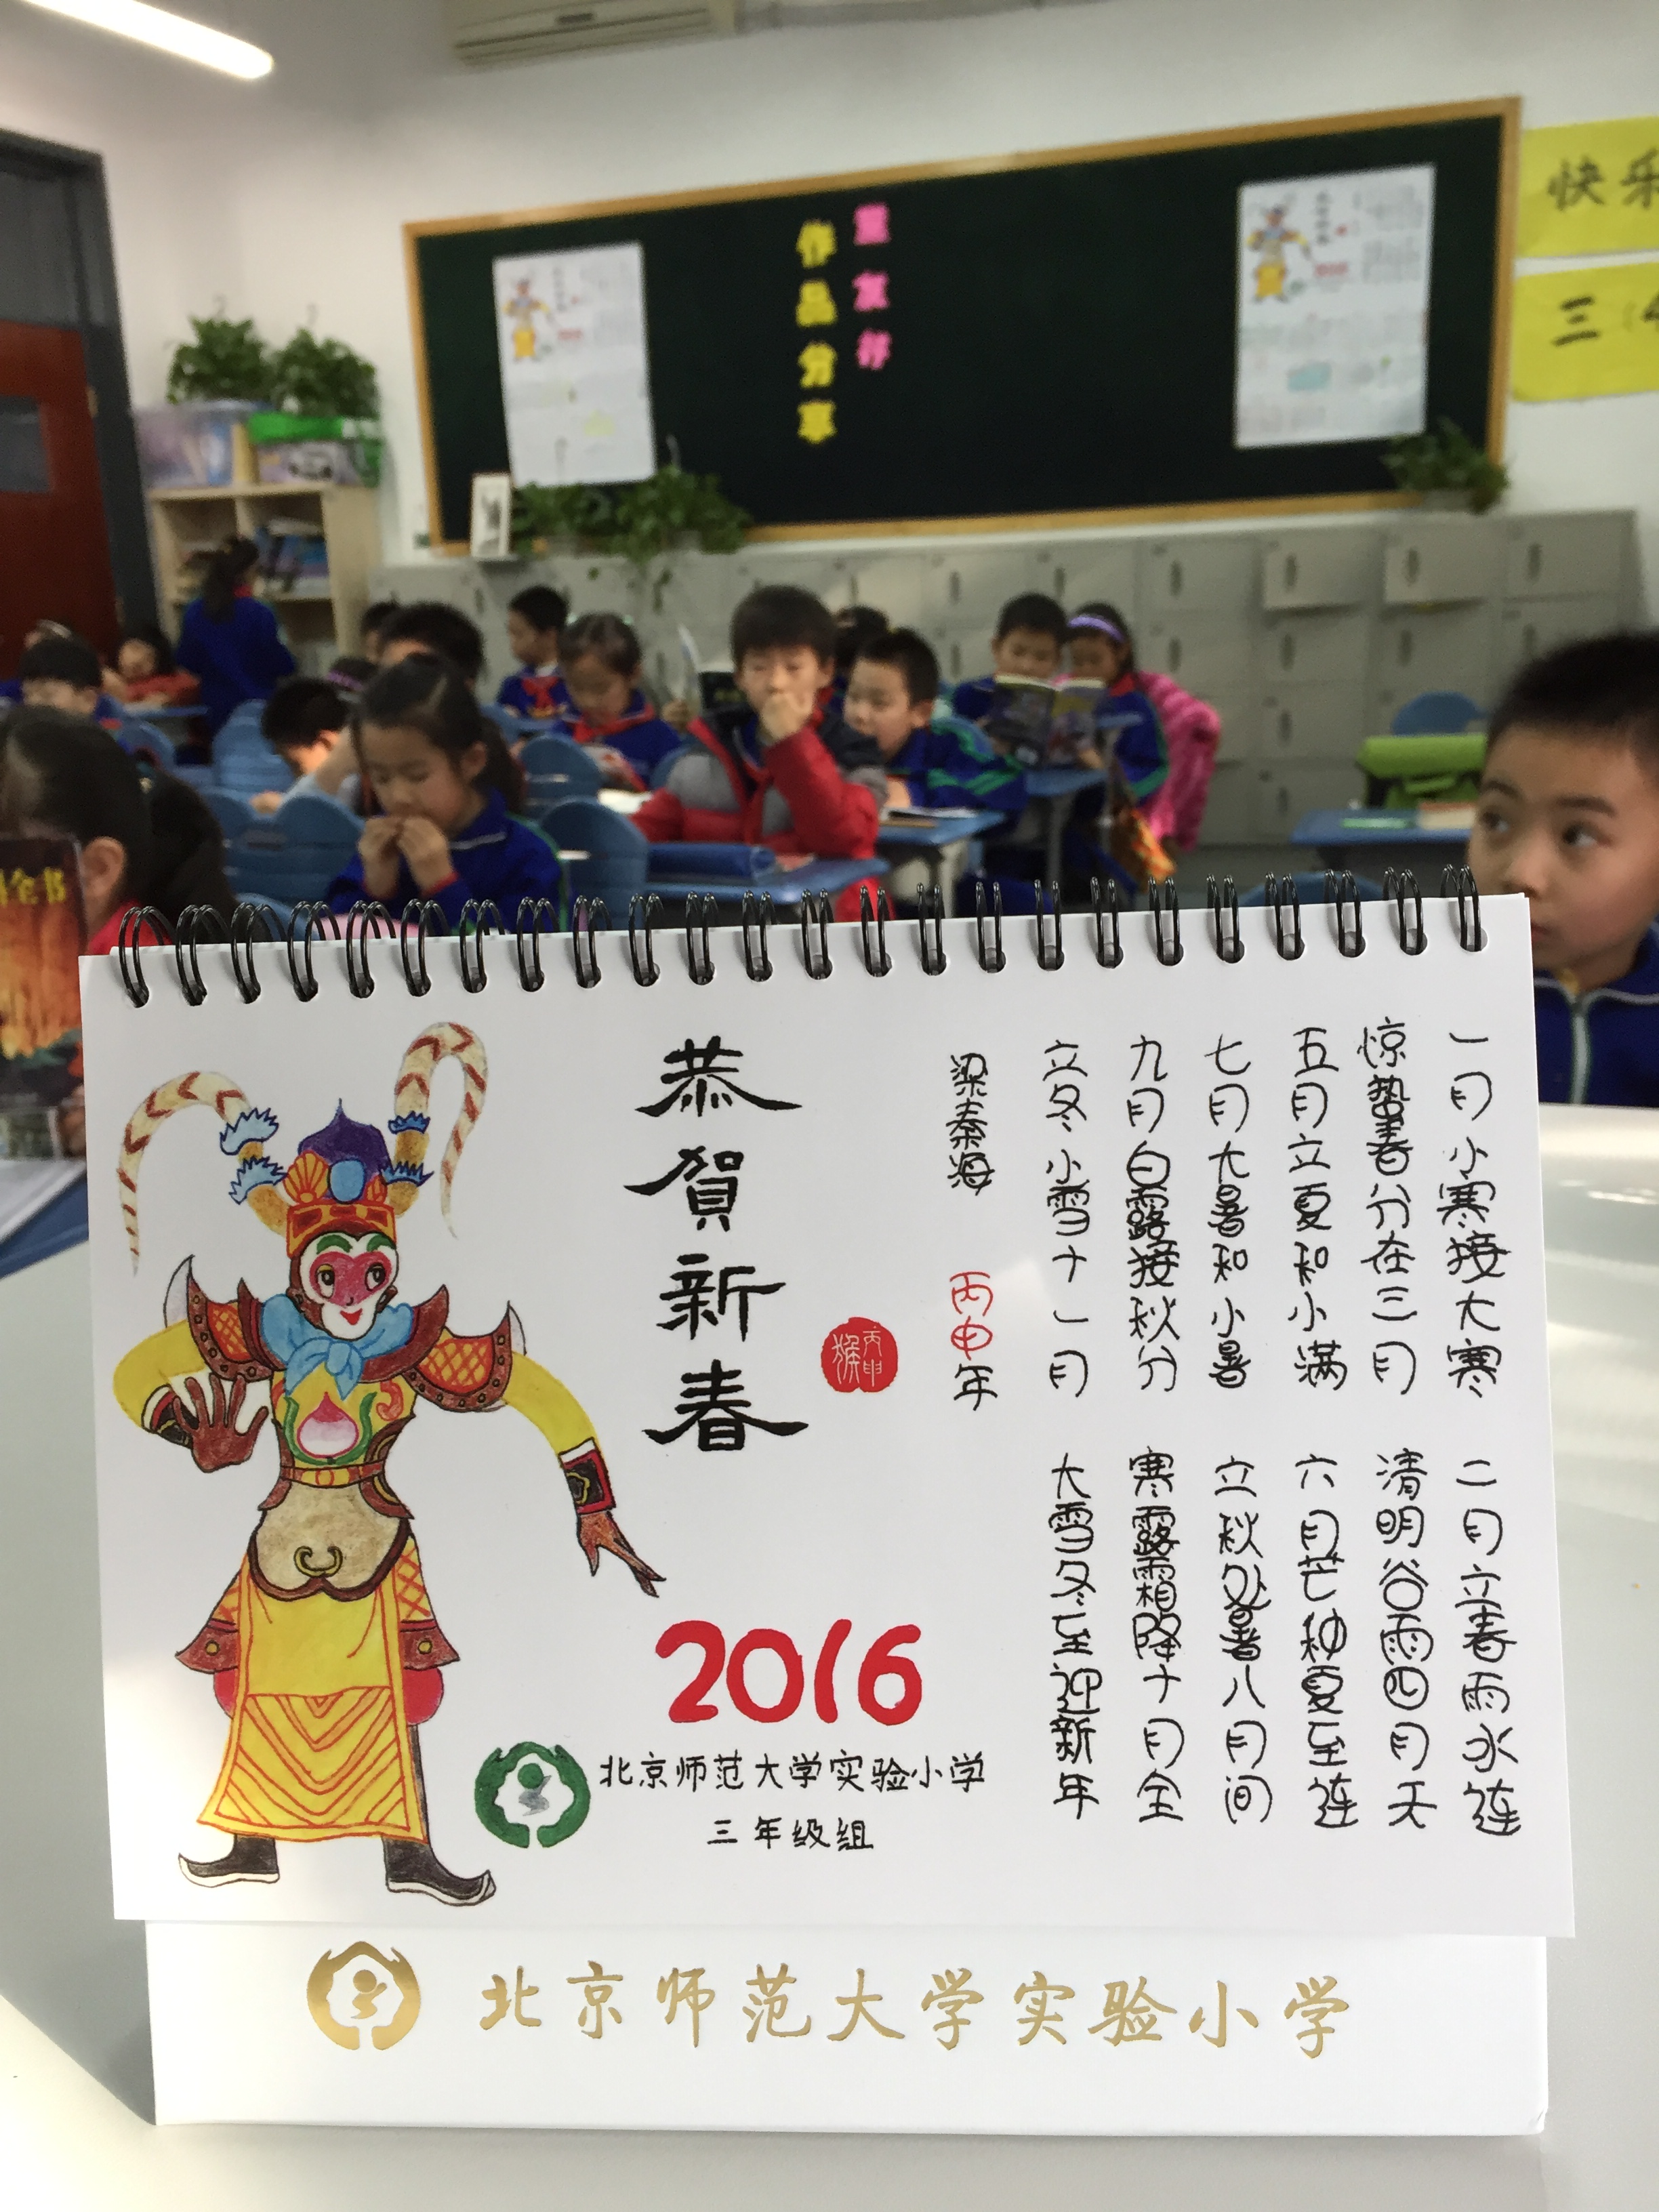 快乐
三（4
作品分享
全书
恭贺新春
丙申
猴
一月小寒接大寒
二月立春雨水连
惊蛰春分在三月
清明谷雨四月天
五月立夏和小满
六月芒种夏至连
七月大暑和小暑
立秋处暑八月间
九月白露接秋分
寒露霜降十月全
立冬小雪十一月
大雪冬至迎新年
梁秦海
丙申年
2016
北京师范大学实验小学
三年级组
北京师范大学实验小学